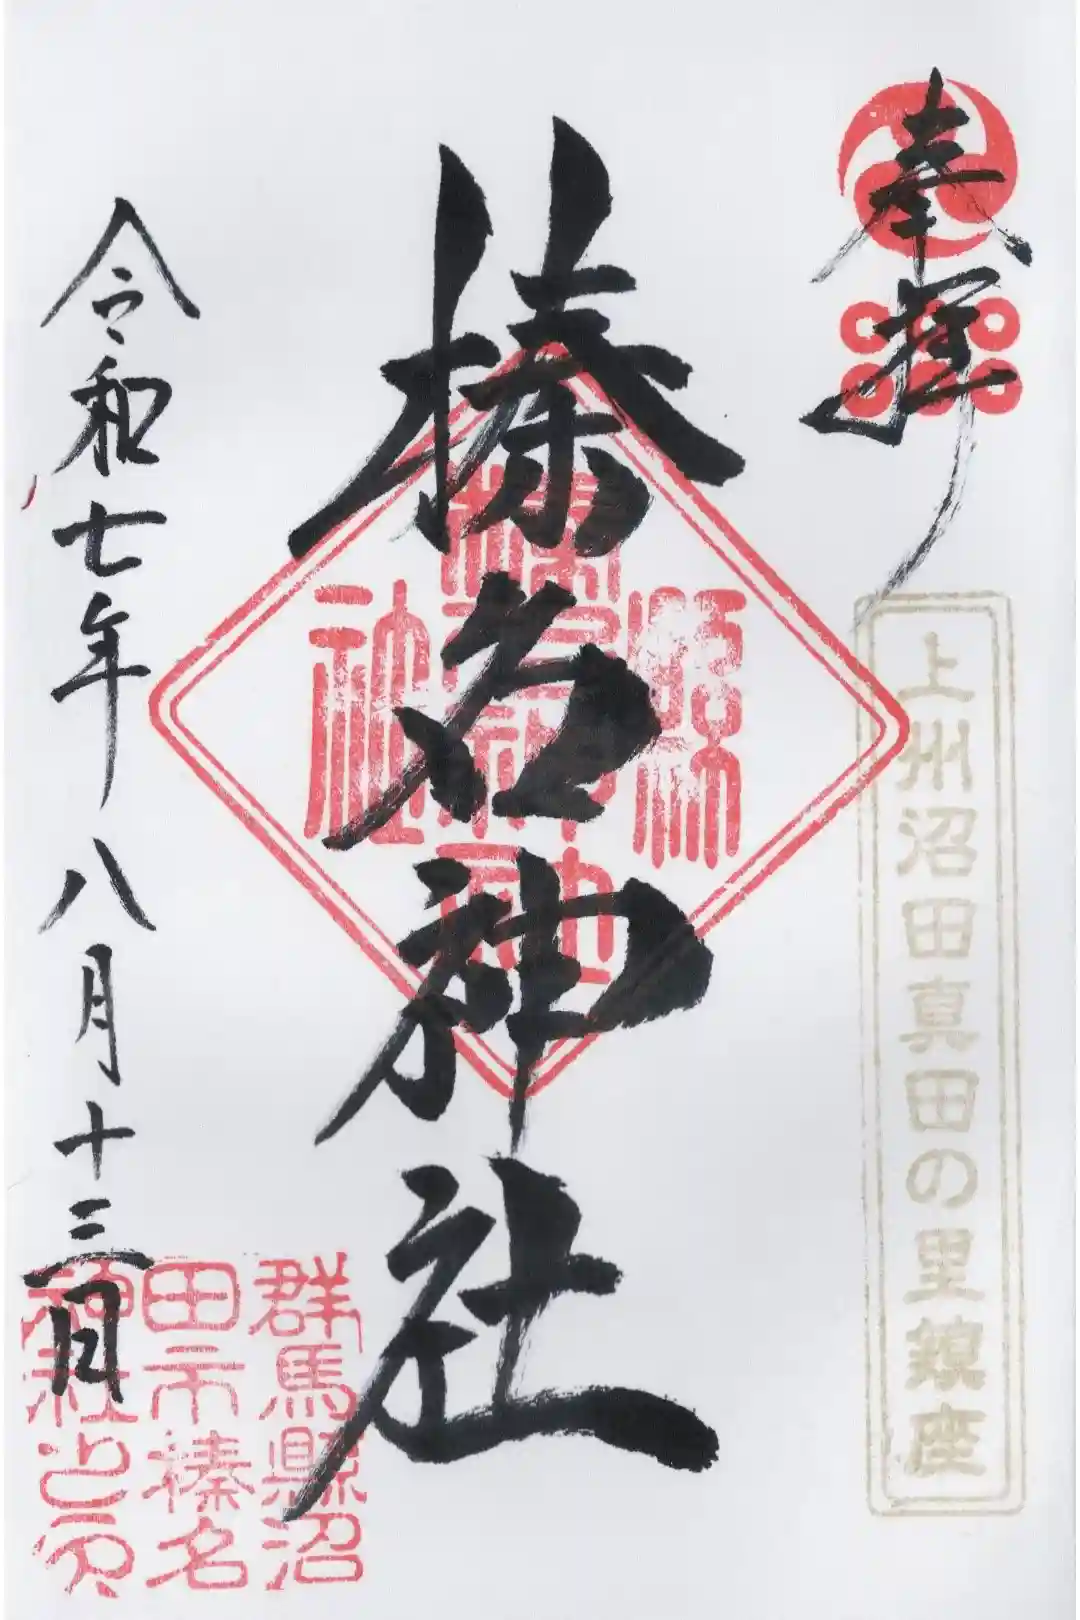 奉拝
上州沼田真田の里鎮座
榛名神社
縣榛名神社社
群馬縣沼
田市榛名
神社之印
令和七年八月十三日